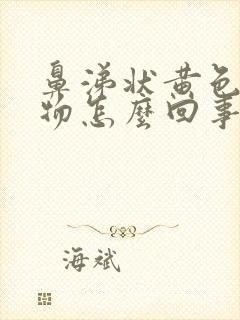 鼻涕状黄色
物怎麼回事
海斌